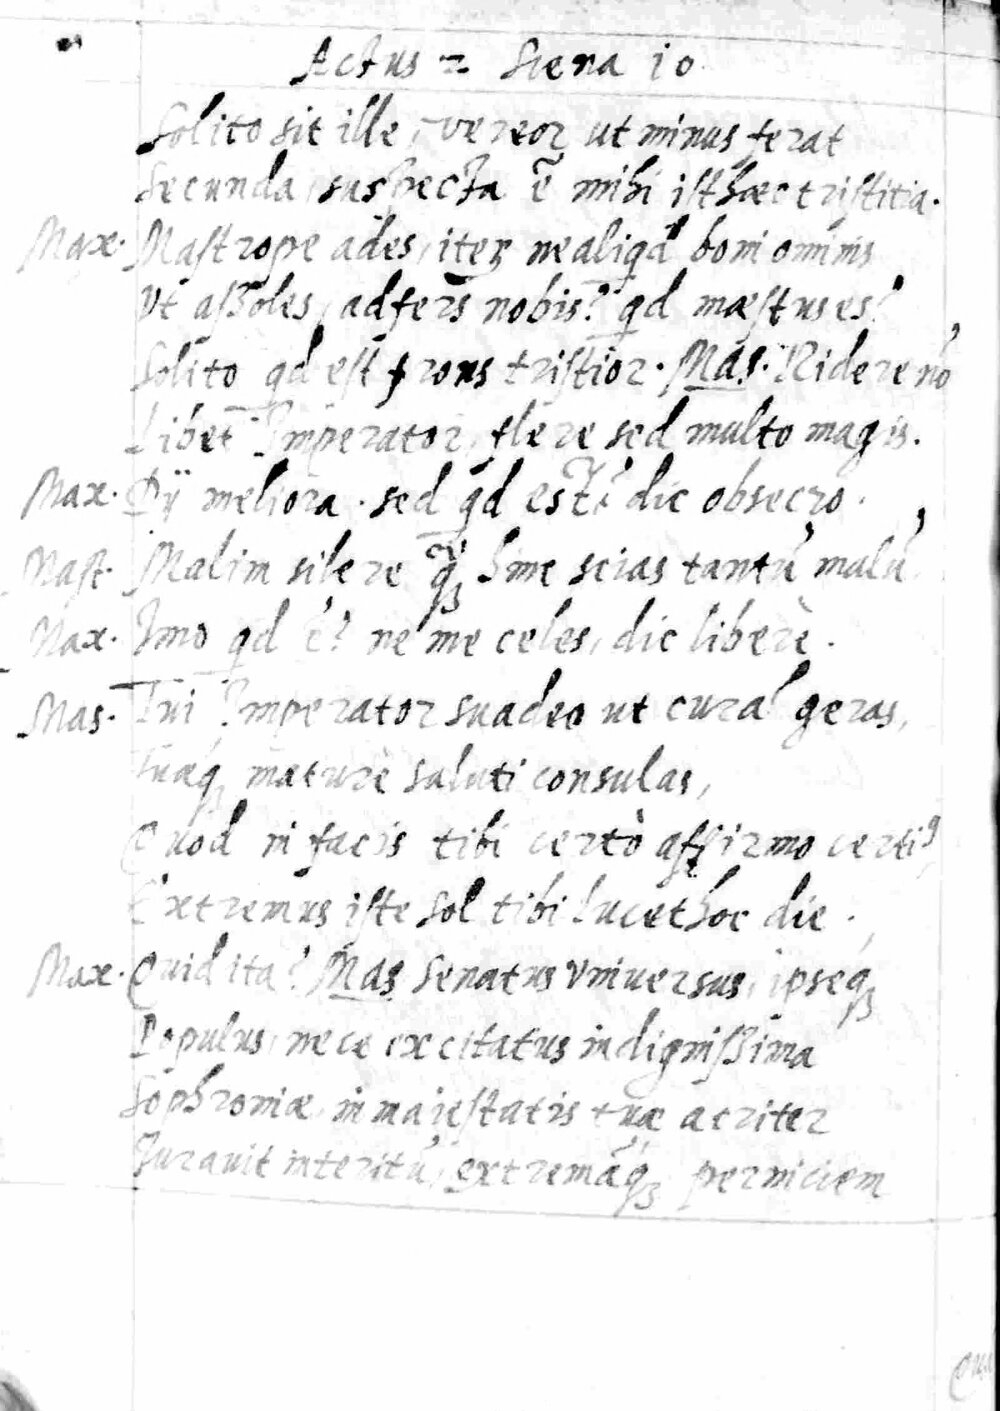 Actus 2 Scena 10
Solito sit ille, vereor ut minus ferat
Secunda, suspecta ē mihi isthæc tristitia.
Max. Mastrope ades, iteꝝ ne aliqd boni ominis
Vt aßoles, adfers nobis? qd mæstus es?
Solito qd est frons tristior. Mas. Ridere nō
Libet Imperator, flere sed multo magis.
Max. Dij meliora. sed qd est? dic obsecro.
Mast. Malim silere q̃ꝫ hinc scias tantū malū.
Max. Imo qd ē? ne me celes, dic liberè.
Mas. Tui Imperator suadeo ut curā geras,
Tuæqꝫ mature saluti consulas,
Quod ni facis tibi certò affirmo certiꝰ,
Extremus iste sol tibi lucet hoc die.
Max. Quid ita? Mas. Senatus vniversus, ipseqꝫ
Populus, nece excitatus indignißima
Sophroniæ, in maiestatis tuæ acriter
Iurauit interitū, extremāqꝫ perniciem